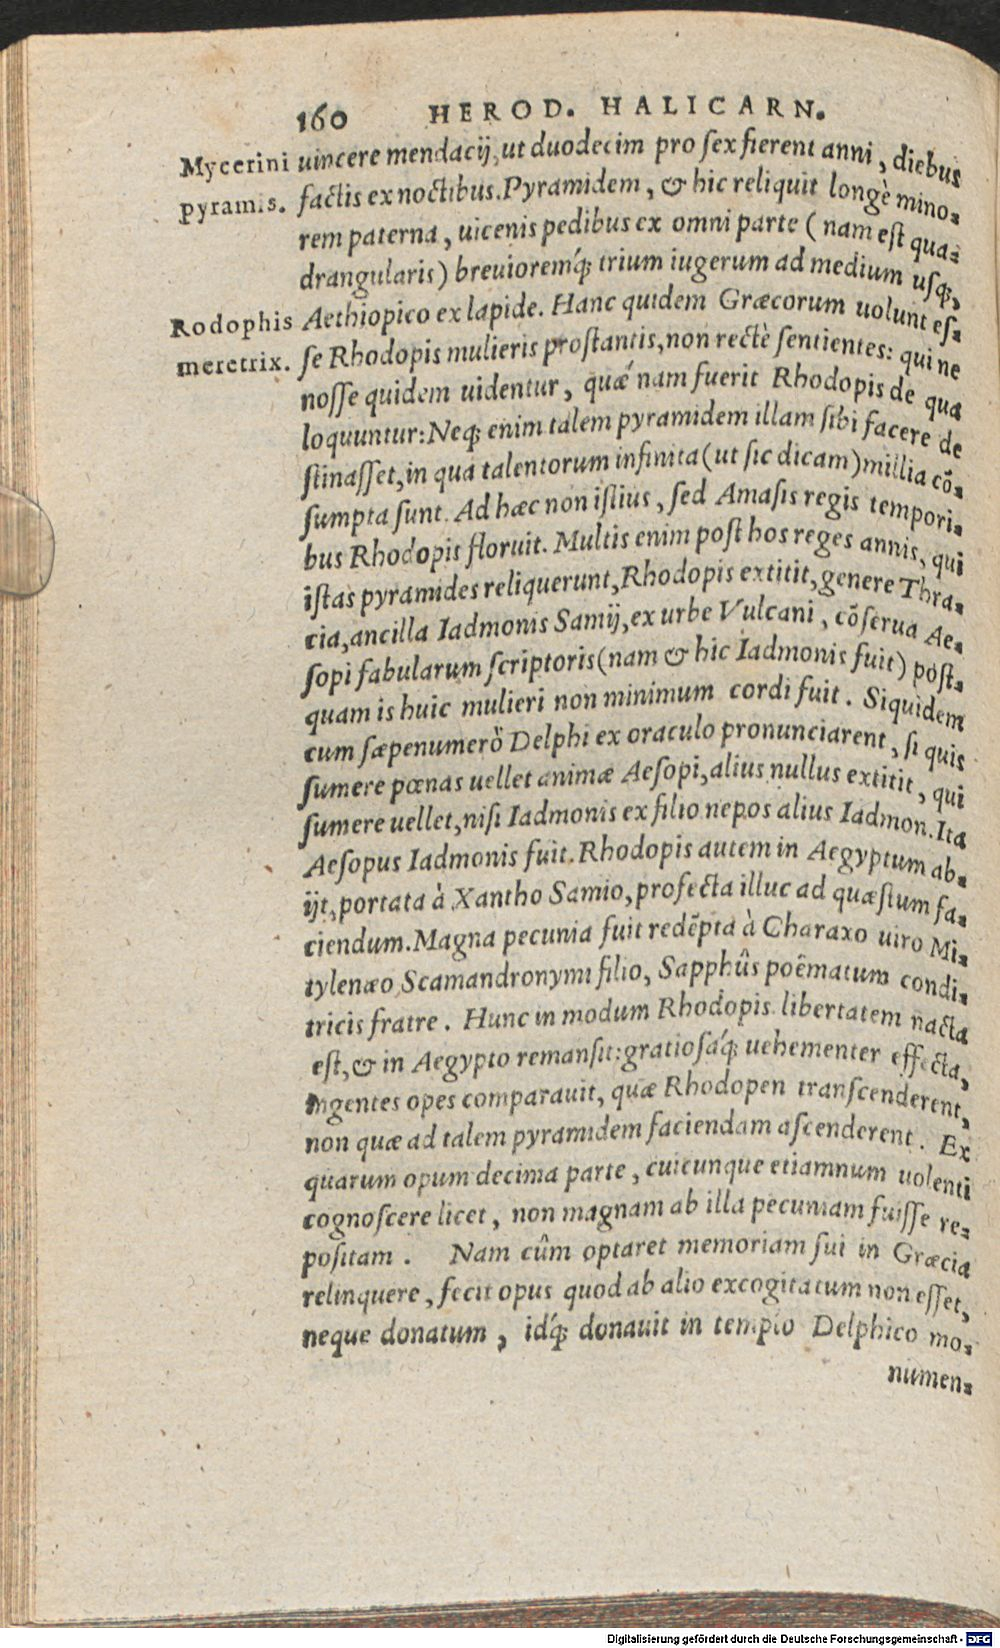 160 HEROD. HALICARN.
Mycerini
pyramis.
uincere mendacij, ut duodecim pro sex fierent anni, diebus
factis ex noctibus. Pyramidem, & hic reliquit longè mino-
rem paterna, uicenis pedibus ex omni parte (nam est qua-
drangularis) breuioremq́; trium iugerum ad medium usq;,
Rodophis
meretrix.
Aethiopico ex lapide. Hanc quidem Græcorum uolunt es-
se Rhodopis mulieris prostantis, non rectè sentientes: qui ne
nosse quidem uidentur, quæ nam fuerit Rhodopis de qua
loquuntur: Neq; enim talem pyramidem illam sibi facere de
stinasset, in qua talentorum infinita (ut sic dicam) millia cō-
sumpta sunt. Ad hæc non istius, sed Amasis regis tempori-
bus Rhodopis floruit. Multis enim post hos reges annis, qui
istas pyramides reliquerunt, Rhodopis extitit, genere Thra-
cia, ancilla Iadmonis Samij, ex urbe Vulcani, cōserua Ae-
sopi fabularum scriptoris (nam & hic Iadmonis fuit) post-
quam is huic mulieri non minimum cordi fuit. Siquidem
cum sæpenumerò Delphi ex oraculo pronunciarent, si quis
sumere pœnas uellet animæ Aesopi, alius nullus extitit, qui
sumere uellet, nisi Iadmonis ex filio nepos alius Iadmon. Ita
Aesopus Iadmonis fuit. Rhodopis autem in Aegyptum ab-
ijt, portata à Xantho Samio, profecta illuc ad quæstum fa-
ciendum. Magna pecunia fuit redēpta à Charaxo uiro Mi-
tylenæo, Scamandronymi filio, Sapphûs poēmatum condi-
tricis fratre. Hunc in modum Rhodopis libertatem nacta
est, & in Aegypto remansit: gratiosaq́; uehementer effecta,
ingentes opes comparauit, quæ Rhodopen transcenderent,
non quæ ad talem pyramidem faciendam ascenderent. Ex
quarum opum decima parte, cuicunque etiamnum uolenti
cognoscere licet, non magnam ab illa pecuniam fuisse re-
positam. Nam cûm optaret memoriam sui in Græcia
relinquere, fecit opus quod ab alio excogitatum non esset,
neque donatum, idq́; donauit in templo Delphico mo-
numen-
Digitalisierung gefördert durch die Deutsche Forschungsgemeinschaft - DFG